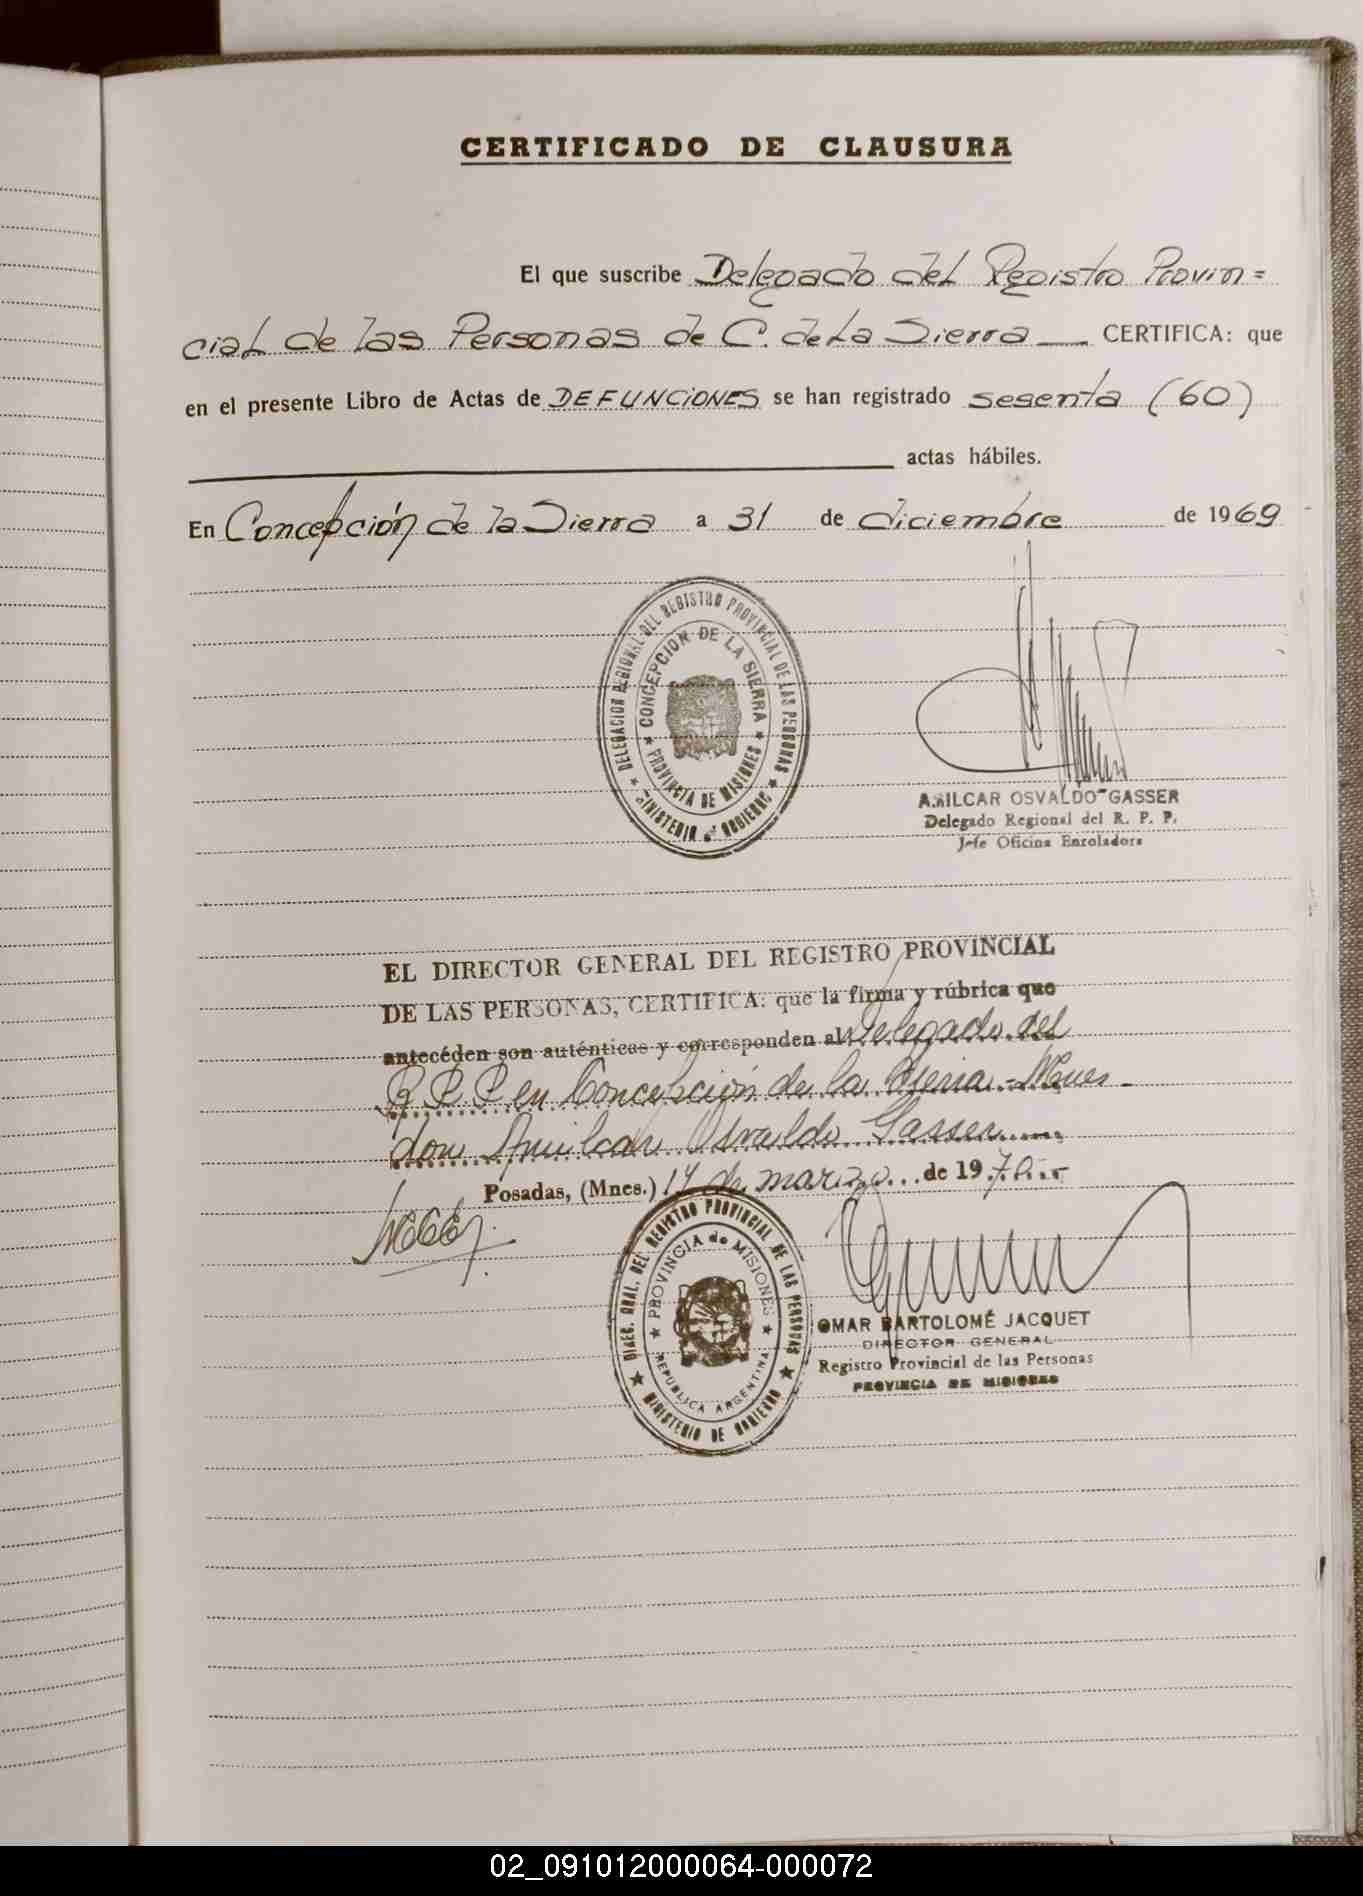 CERTIFICADO DE CLAUSURA
El que suscribe Delegado del Registro Provin=
cial de las Personas de C. de La Sierra CERTIFICA: que
en el presente Libro de Actas de DEFUNCIONES se han registrado sesenta (60)
actas hábiles.
En Concepción de la Sierra a 31 de diciembre de 1969
DELEGACION REGIONAL DEL REGISTRO PROVINCIAL DE LAS PERSONAS
CONCEPCION DE LA SIERRA
PROVINCIA DE MISIONES
MINISTERIO de GOBIERNO
AMILCAR OSVALDO GASSER
Delegado Regional del R. P. P.
Jefe Oficina Enroladora
EL DIRECTOR GENERAL DEL REGISTRO PROVINCIAL
DE LAS PERSONAS, CERTIFICA: que la firma y rúbrica que
antecéden son auténticas y corresponden al Delegado del
R.P.P. en Concepción de la Sierra-Mnes-
don Amilcar Osvaldo Gasser
Posadas, (Mnes.) 14 de marzo de 1970
DIREC. GRAL. DEL REGISTRO PROVINCIAL DE LAS PERSONAS
PROVINCIA de MISIONES
REPUBLICA ARGENTINA
MINISTERIO DE GOBIERNO
OMAR BARTOLOMÉ JACQUET
DIRECTOR GENERAL
Registro Provincial de las Personas
PROVINCIA DE MISIONES
02_091012000064-000072